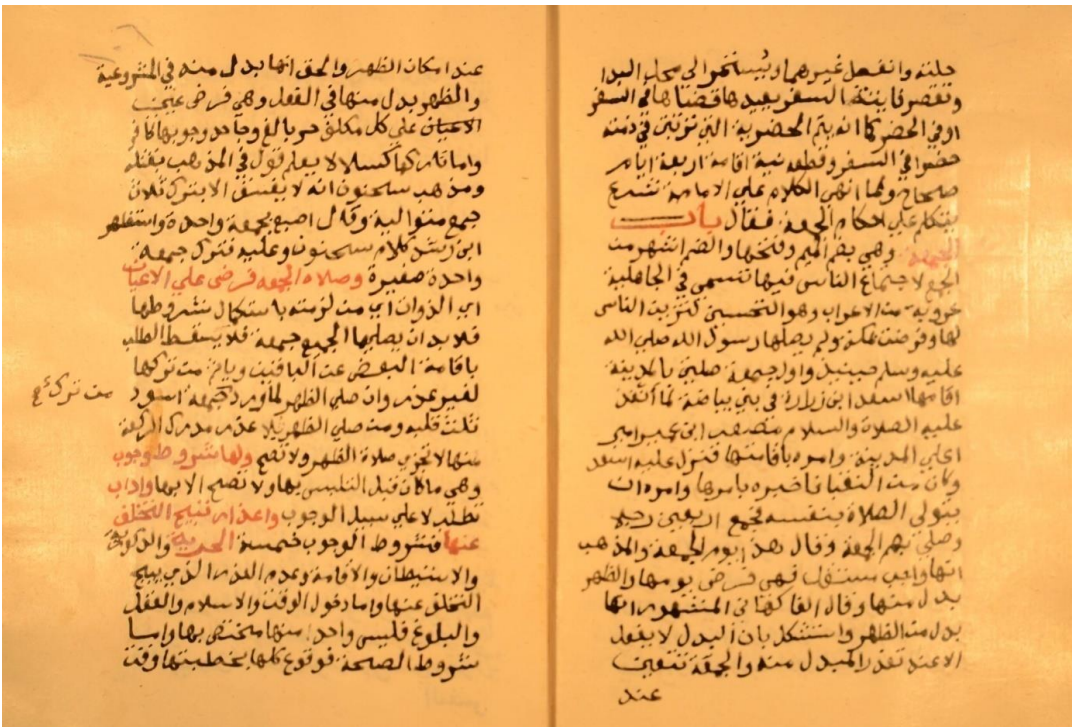 جلبته وانفعل غيرهما ويستمر الي محل البدا
وتقصر فايتة السفر يعيدها قضاها في السفر
او في الحضر كما انه يتم الحضرية التي ترتبت في ذمته
حضرا في السفر وقطعه نية اقامة اربعة ايام
صحاح ولما انهي الكلام علي الامامة شرع
يتكلم علي احكام الجمعة فقال باب
الجمعة وهي بضم الميم وفتحها والضم اشهر من
الجمع لاجتماع الناس فيها تسمي في الجاهلية
عروبة من الاعراب وهو التحسين لتزين الناس
لها وفرضت بمكة ولم يصلها رسول الله صلي الله
عليه وسلم حينيذ واول جمعة صليت بالمدينة
اقامها اسعد ابن زرارة في بني بياضة لما انفذ
عليه الصلاة والسلام مصعب ابن عمير امير
اعلي المدينة وامره باقامتها فنزل علي اسعد
وكان من النقبا فاخبره بامرها وامره ان
يتولى الصلاة بنفسه فجمع اربعين رجلا
وصلي بهم الجمعة وقال هذا يوم الجمعة والمذهب
انها واجب مستقل فهي فرض يومها والظهر
بدل منها وقال الفاكهاني المشهور انها
بدل من الظهر واستشكل بان البدل لا يفعل
الا عند تعذر المبدل منه والجمعة تتعين
عند
عند امكان الظهر والحق انها بدل منه في المشروعية
والظهر بدل منها في الفعل وهي فرض عين
الاعيان علي كل مكلف حر بالغ وجاحد وجوبها كافر
واما تاركها كسلا لا يعلم قول في المذهب بقتله
ومذهب سحنون انه لا يفسق الا بترك ثلاث
جمع متوالية وقال اصبغ بجمعة واحدة واستظهر
ابن رشد كلام سحنون وعليه فترك جمعة
واحدة صغيرة وصلاة الجمعه فرض علي الاعيان
اي الذوات اي من لزمته باستكمال شروطها
فلا بد ان يصليها الجميع جمعة فلا يسقط الطلب
باقامة البعض عن الباقين وياثم من تركها
لغير عذر وان صلي الظهر لما ورد جمعة اسود
من ترك
ثلث قلبه ومن صلي الظهر بلا عذر مدرك الركعة
منها لا تجزي صلاة الظهر ولا تصح ولها شروط وجوب
وهي ما كان قبل التلبس بها ولا تصح الا بها واداب
تطلب لا علي سبيل الوجوب واعذار تبيح التخلف
عنها فشروط الوجوب خمسة الحرية والذكورة
والاستيطان والاقامة وعدم العذر الذي يبيح
التخلف عنها واما دخول الوقت والاسلام والعقل
والبلوغ فليس واحدا منها مختص بها واما
شروط الصحة فوقوع كلها بخطبتها وقت